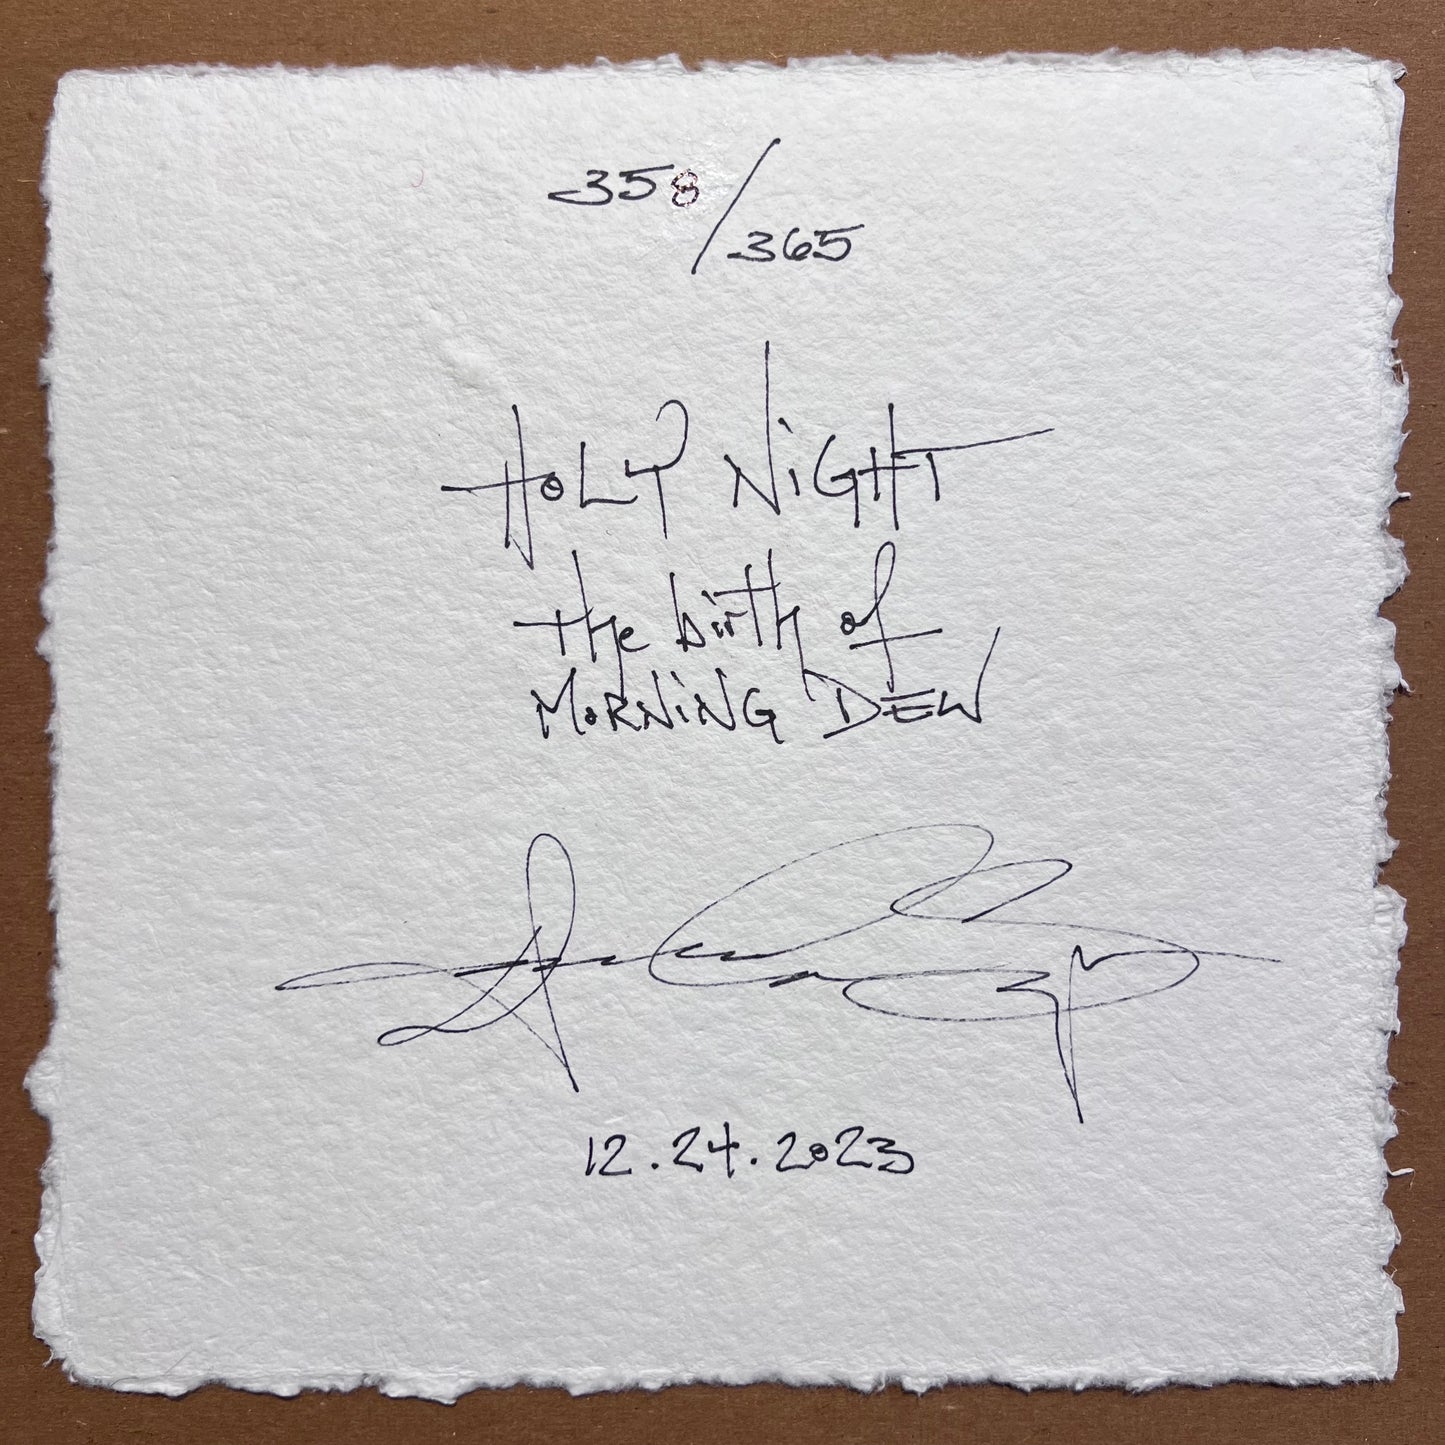 358/365
HOLY NIGHT
the birth of
MORNING DEW
12.24.2023